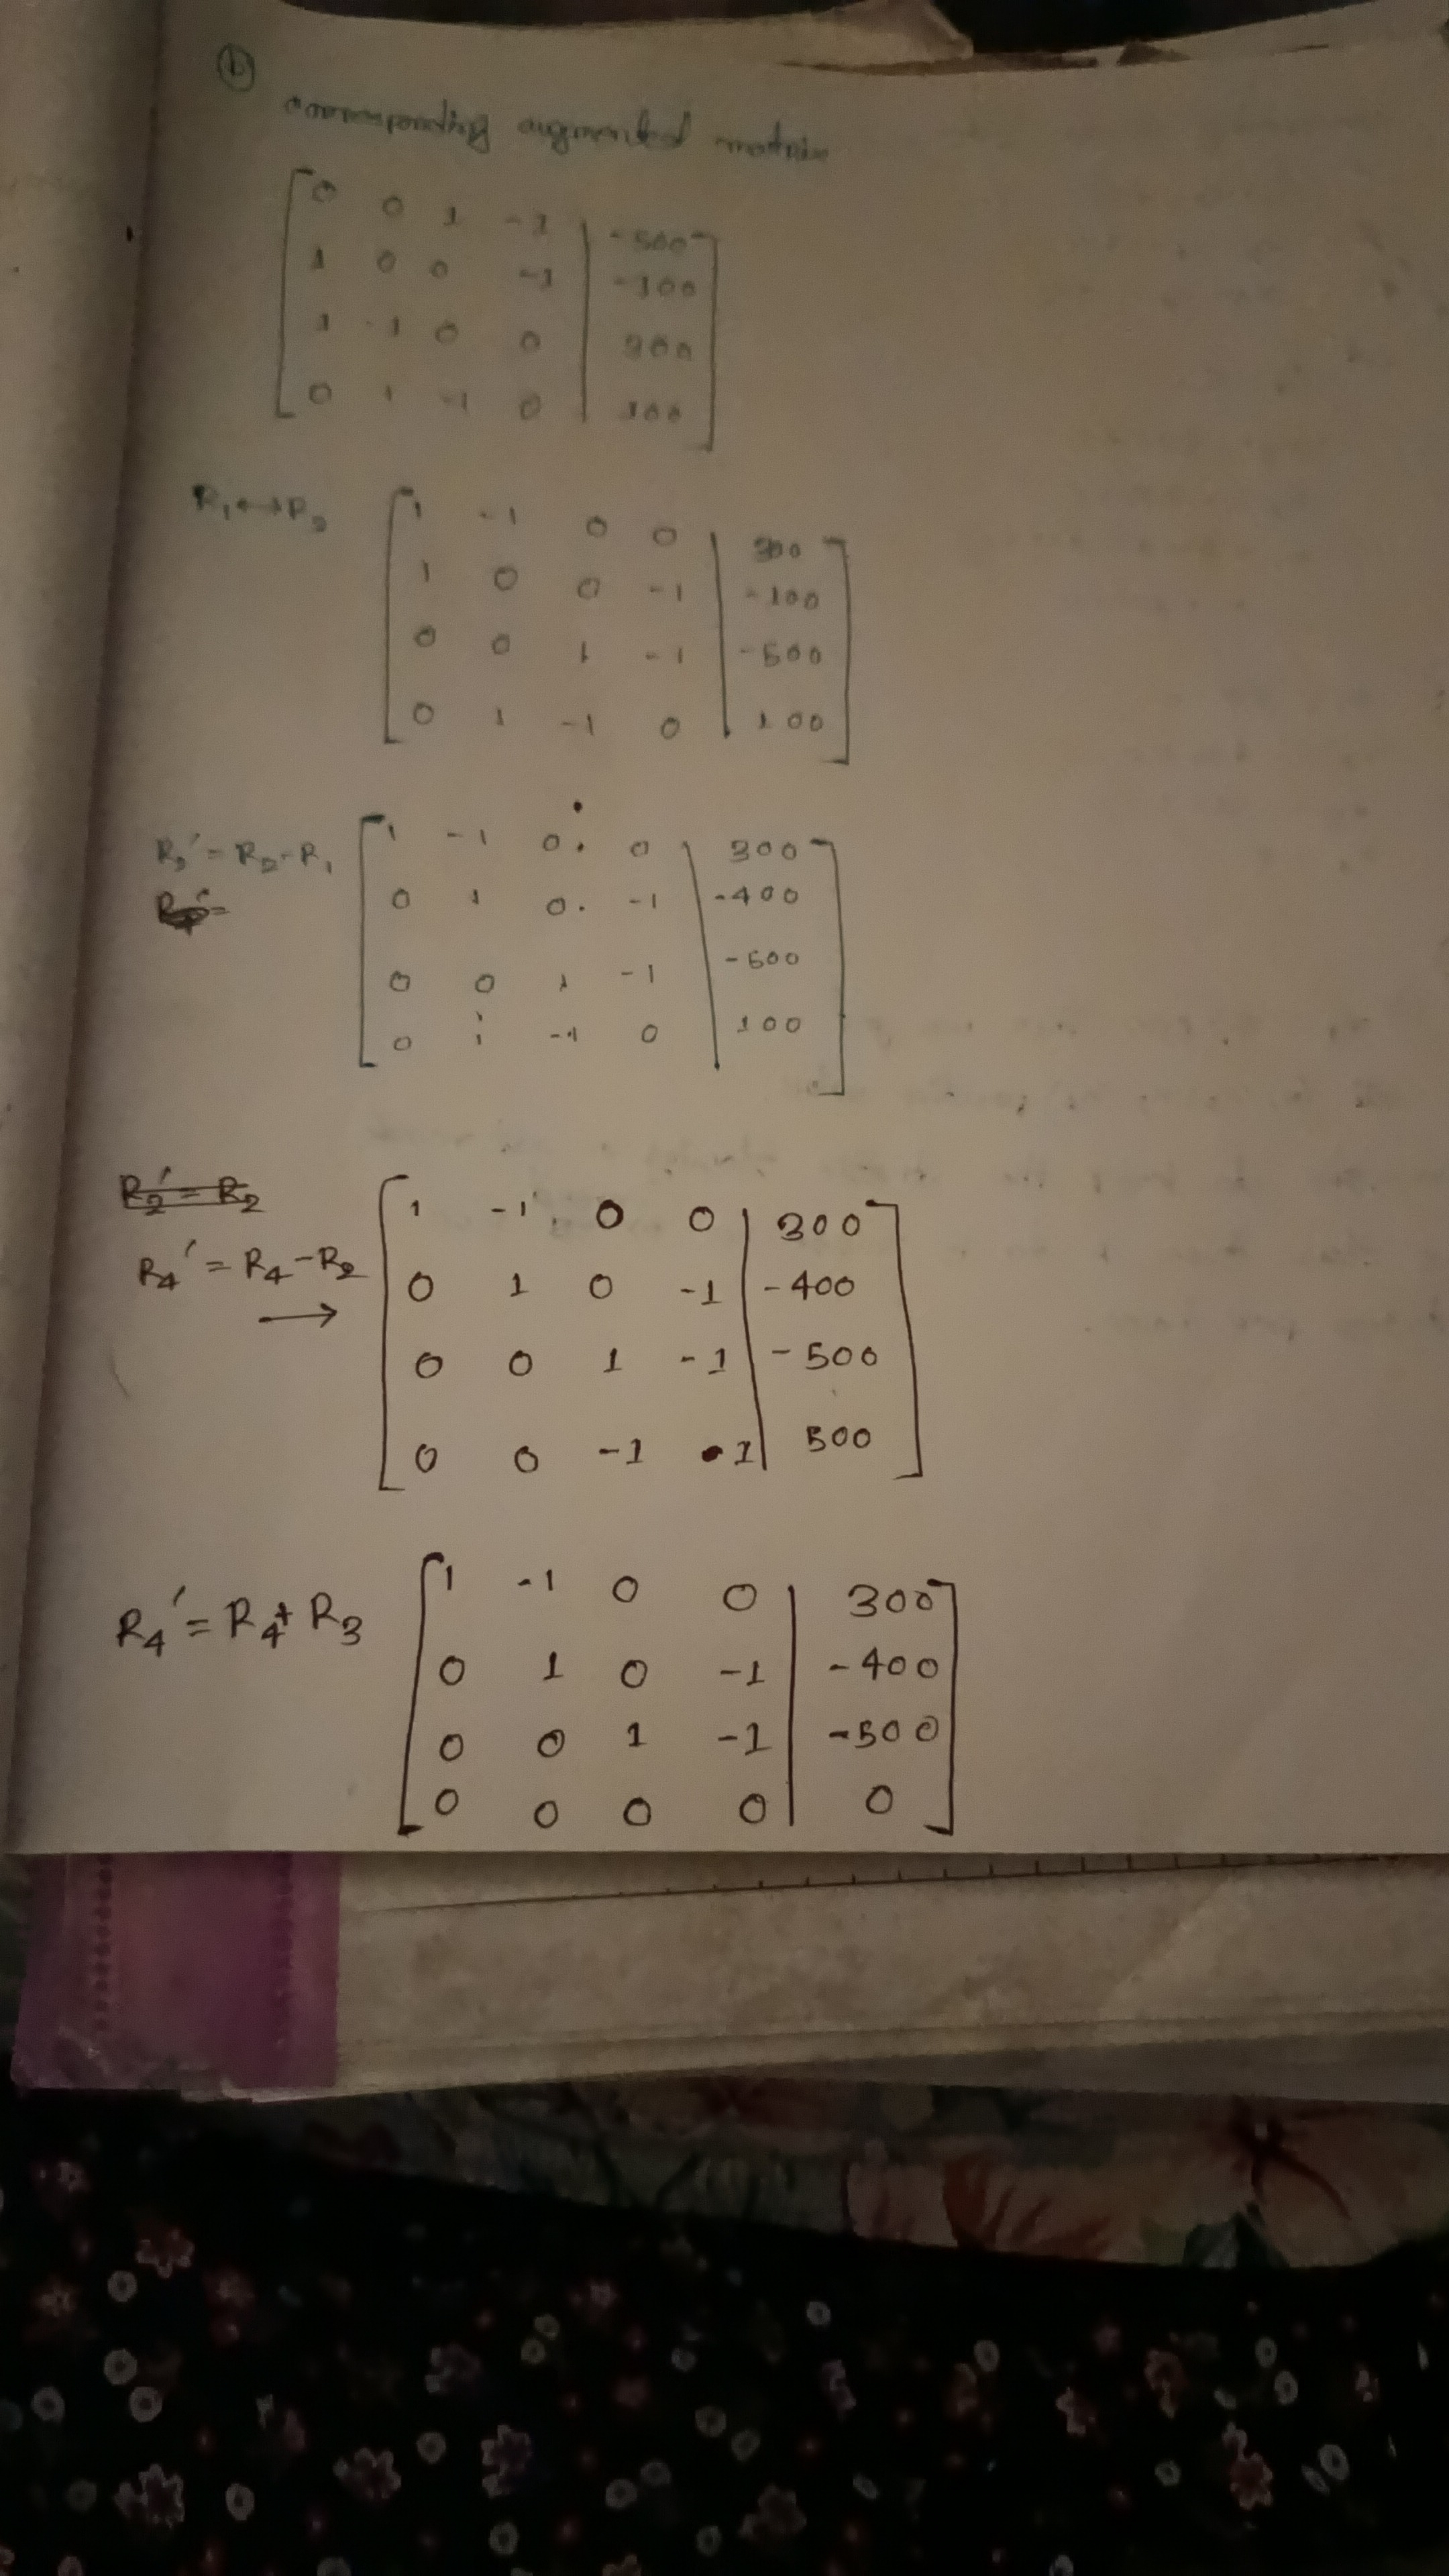 (b)
corresponding augmented matrix
[ 0 0 1 -1 | -500 ]
[ 1 0 0 -1 | -100 ]
[ 1 -1 0 0 | 300 ]
[ 0 1 -1 0 | 100 ]
R₁↔R₃ [ 1 -1 0 0 | 300 ]
[ 1 0 0 -1 | -100 ]
[ 0 0 1 -1 | -500 ]
[ 0 1 -1 0 | 100 ]
R₂′=R₂-R₁ [ 1 -1 0 0 | 300 ]
[ 0 1 0 -1 | -400 ]
[ 0 0 1 -1 | -500 ]
[ 0 1 -1 0 | 100 ]
R₂′=R₂
R₄′=R₄-R₂ → [ 1 -1 0 0 | 300 ]
[ 0 1 0 -1 | -400 ]
[ 0 0 1 -1 | -500 ]
[ 0 0 -1 1 | 500 ]
R₄′=R₄+R₃ [ 1 -1 0 0 | 300 ]
[ 0 1 0 -1 | -400 ]
[ 0 0 1 -1 | -500 ]
[ 0 0 0 0 | 0 ]